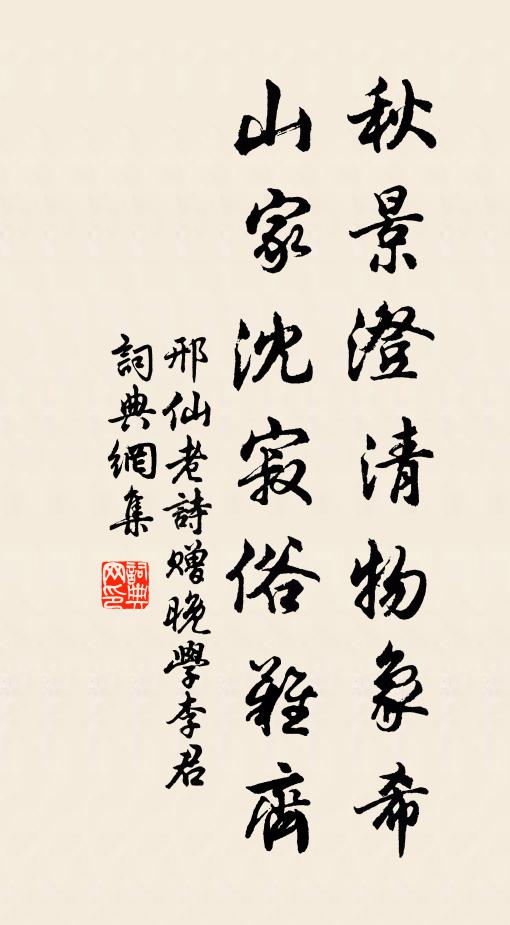 秋景澄清物象希
山家沈寂俗難齊
邢仙老詩贈晚學李君
詞典網集
詞典
网印